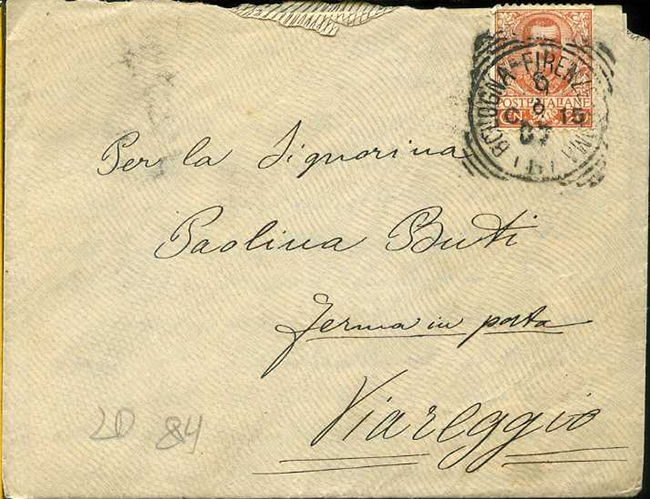 BOLOGNA-FIRENZE
POSTE ITALIANE
C. 15
07
Per la Signorina
Paolina Buti
ferma in posta
Viareggio
20 84